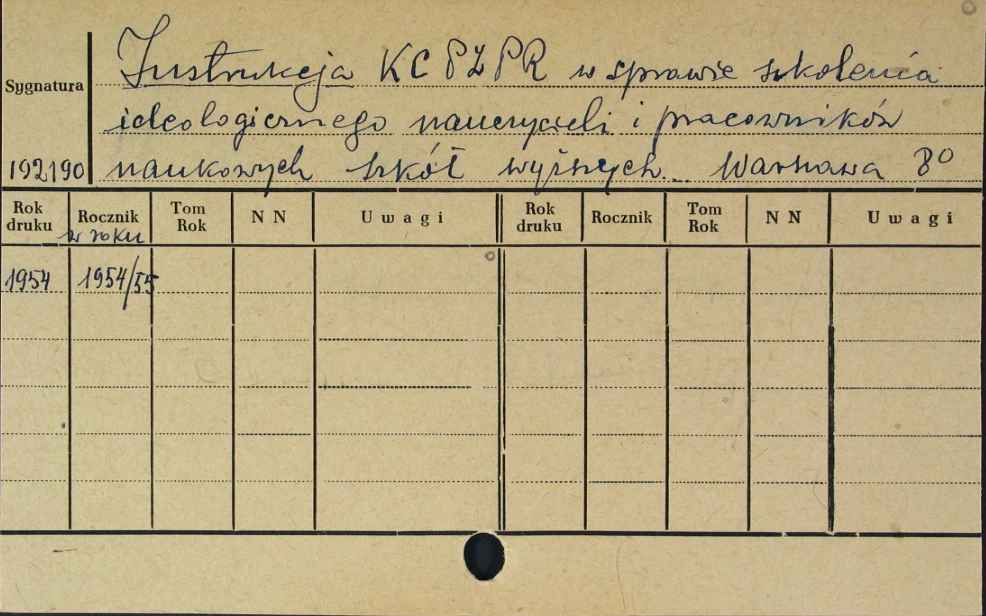 Instrukcja KC PZPR w sprawie szkolenia
Sygnatura
ideologicznego nauczycieli i pracowników
192190 naukowych szkół wyższych. Warszawa 8°
Rok druku Rocznik w roku Tom Rok N N Uwagi Rok druku Rocznik Tom Rok N N Uwagi
1954 1954/55